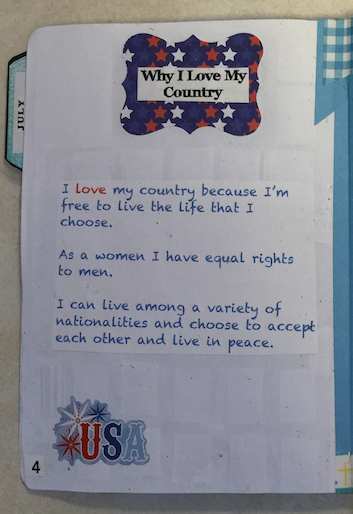 JULY
Why I Love My
Country
I love my country because I'm
free to live the life that I
choose.
As a women I have equal rights
to men.
I can live among a variety of
nationalities and choose to accept
each other and live in peace.
USA
4